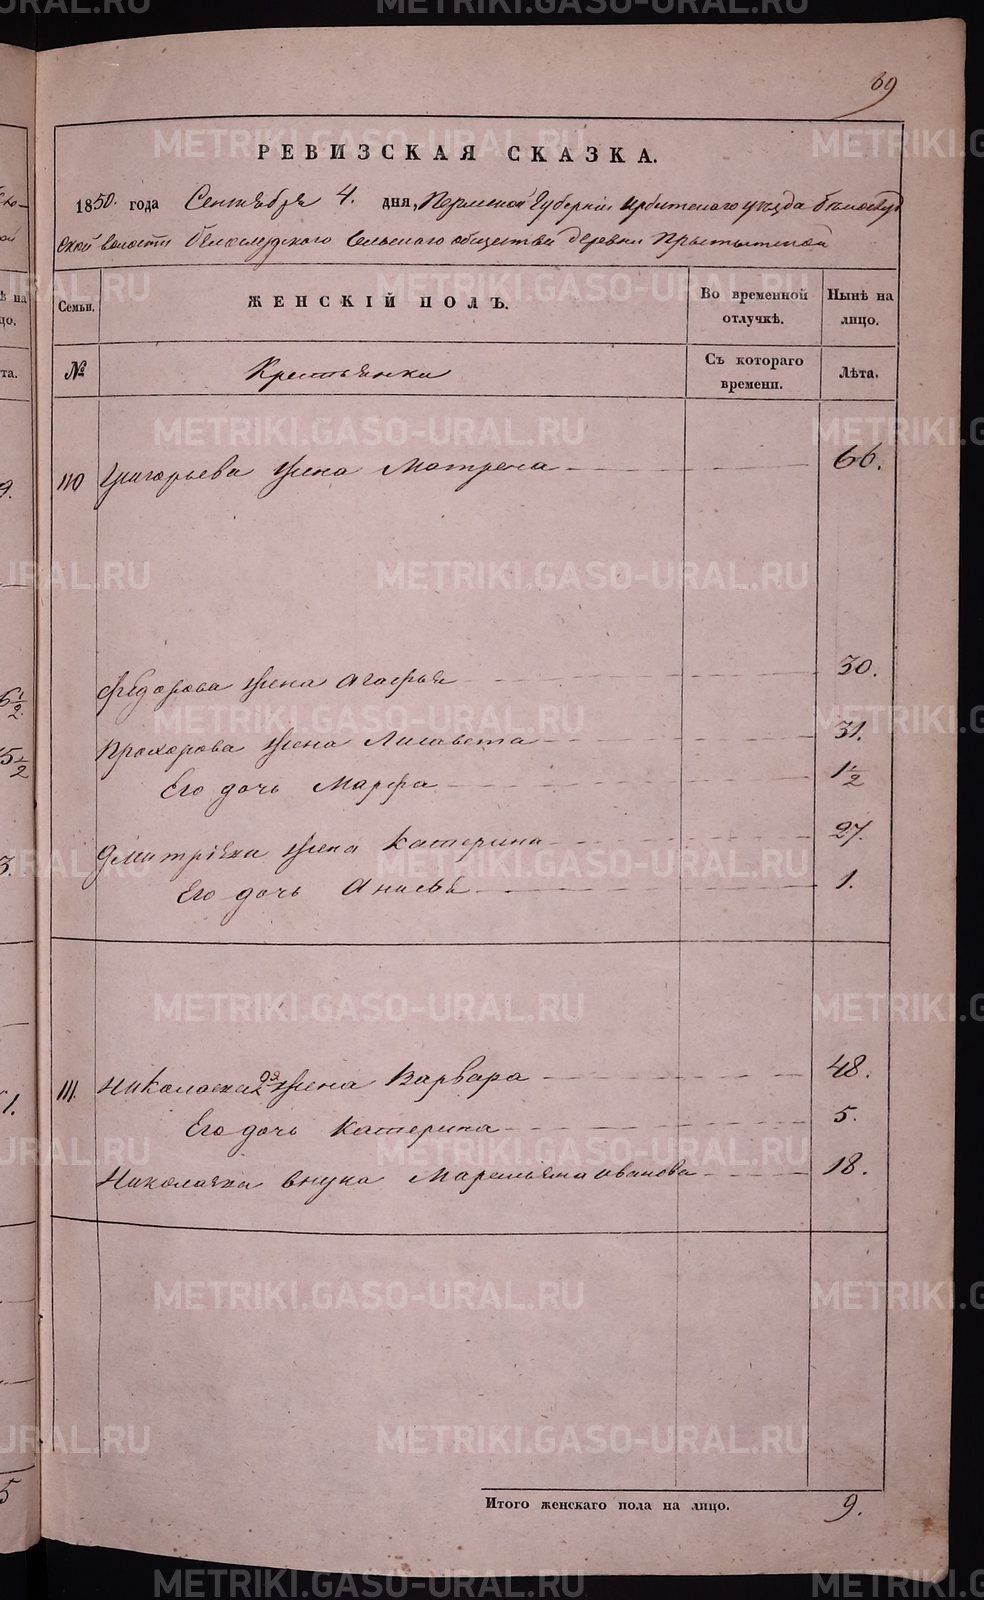 69
РЕВИЗСКАЯ СКАЗКА.
1850. года Сентября 4. дня, Пермской Губерніи Ирбитскаго уѣзда Бѣлослуд
ской волости Белослудскаго Сельскаго общества деревни
Семьи.
ЖЕНСКІЙ ПОЛЪ.
Во временной отлучкѣ.
Нынѣ на лицо.
№
Крестьянки
Съ котораго времени.
Лѣта.
110 Григорьева жена Матрена 66.
Федорова жена Агафья 30.
Прохорова жена Лисавета 31.
Его дочь Марфа 1 1/2
Дмитріева жена Катерина 27.
Его дочь Анисья 1.
111. Николаева 2я жена Варвара 48.
Его дочь Катерина 5.
Николаева внука Маремьяна Иванова 18.
Итого женскаго пола на лицо. 9.
METRIKI.GASO-URAL.RU